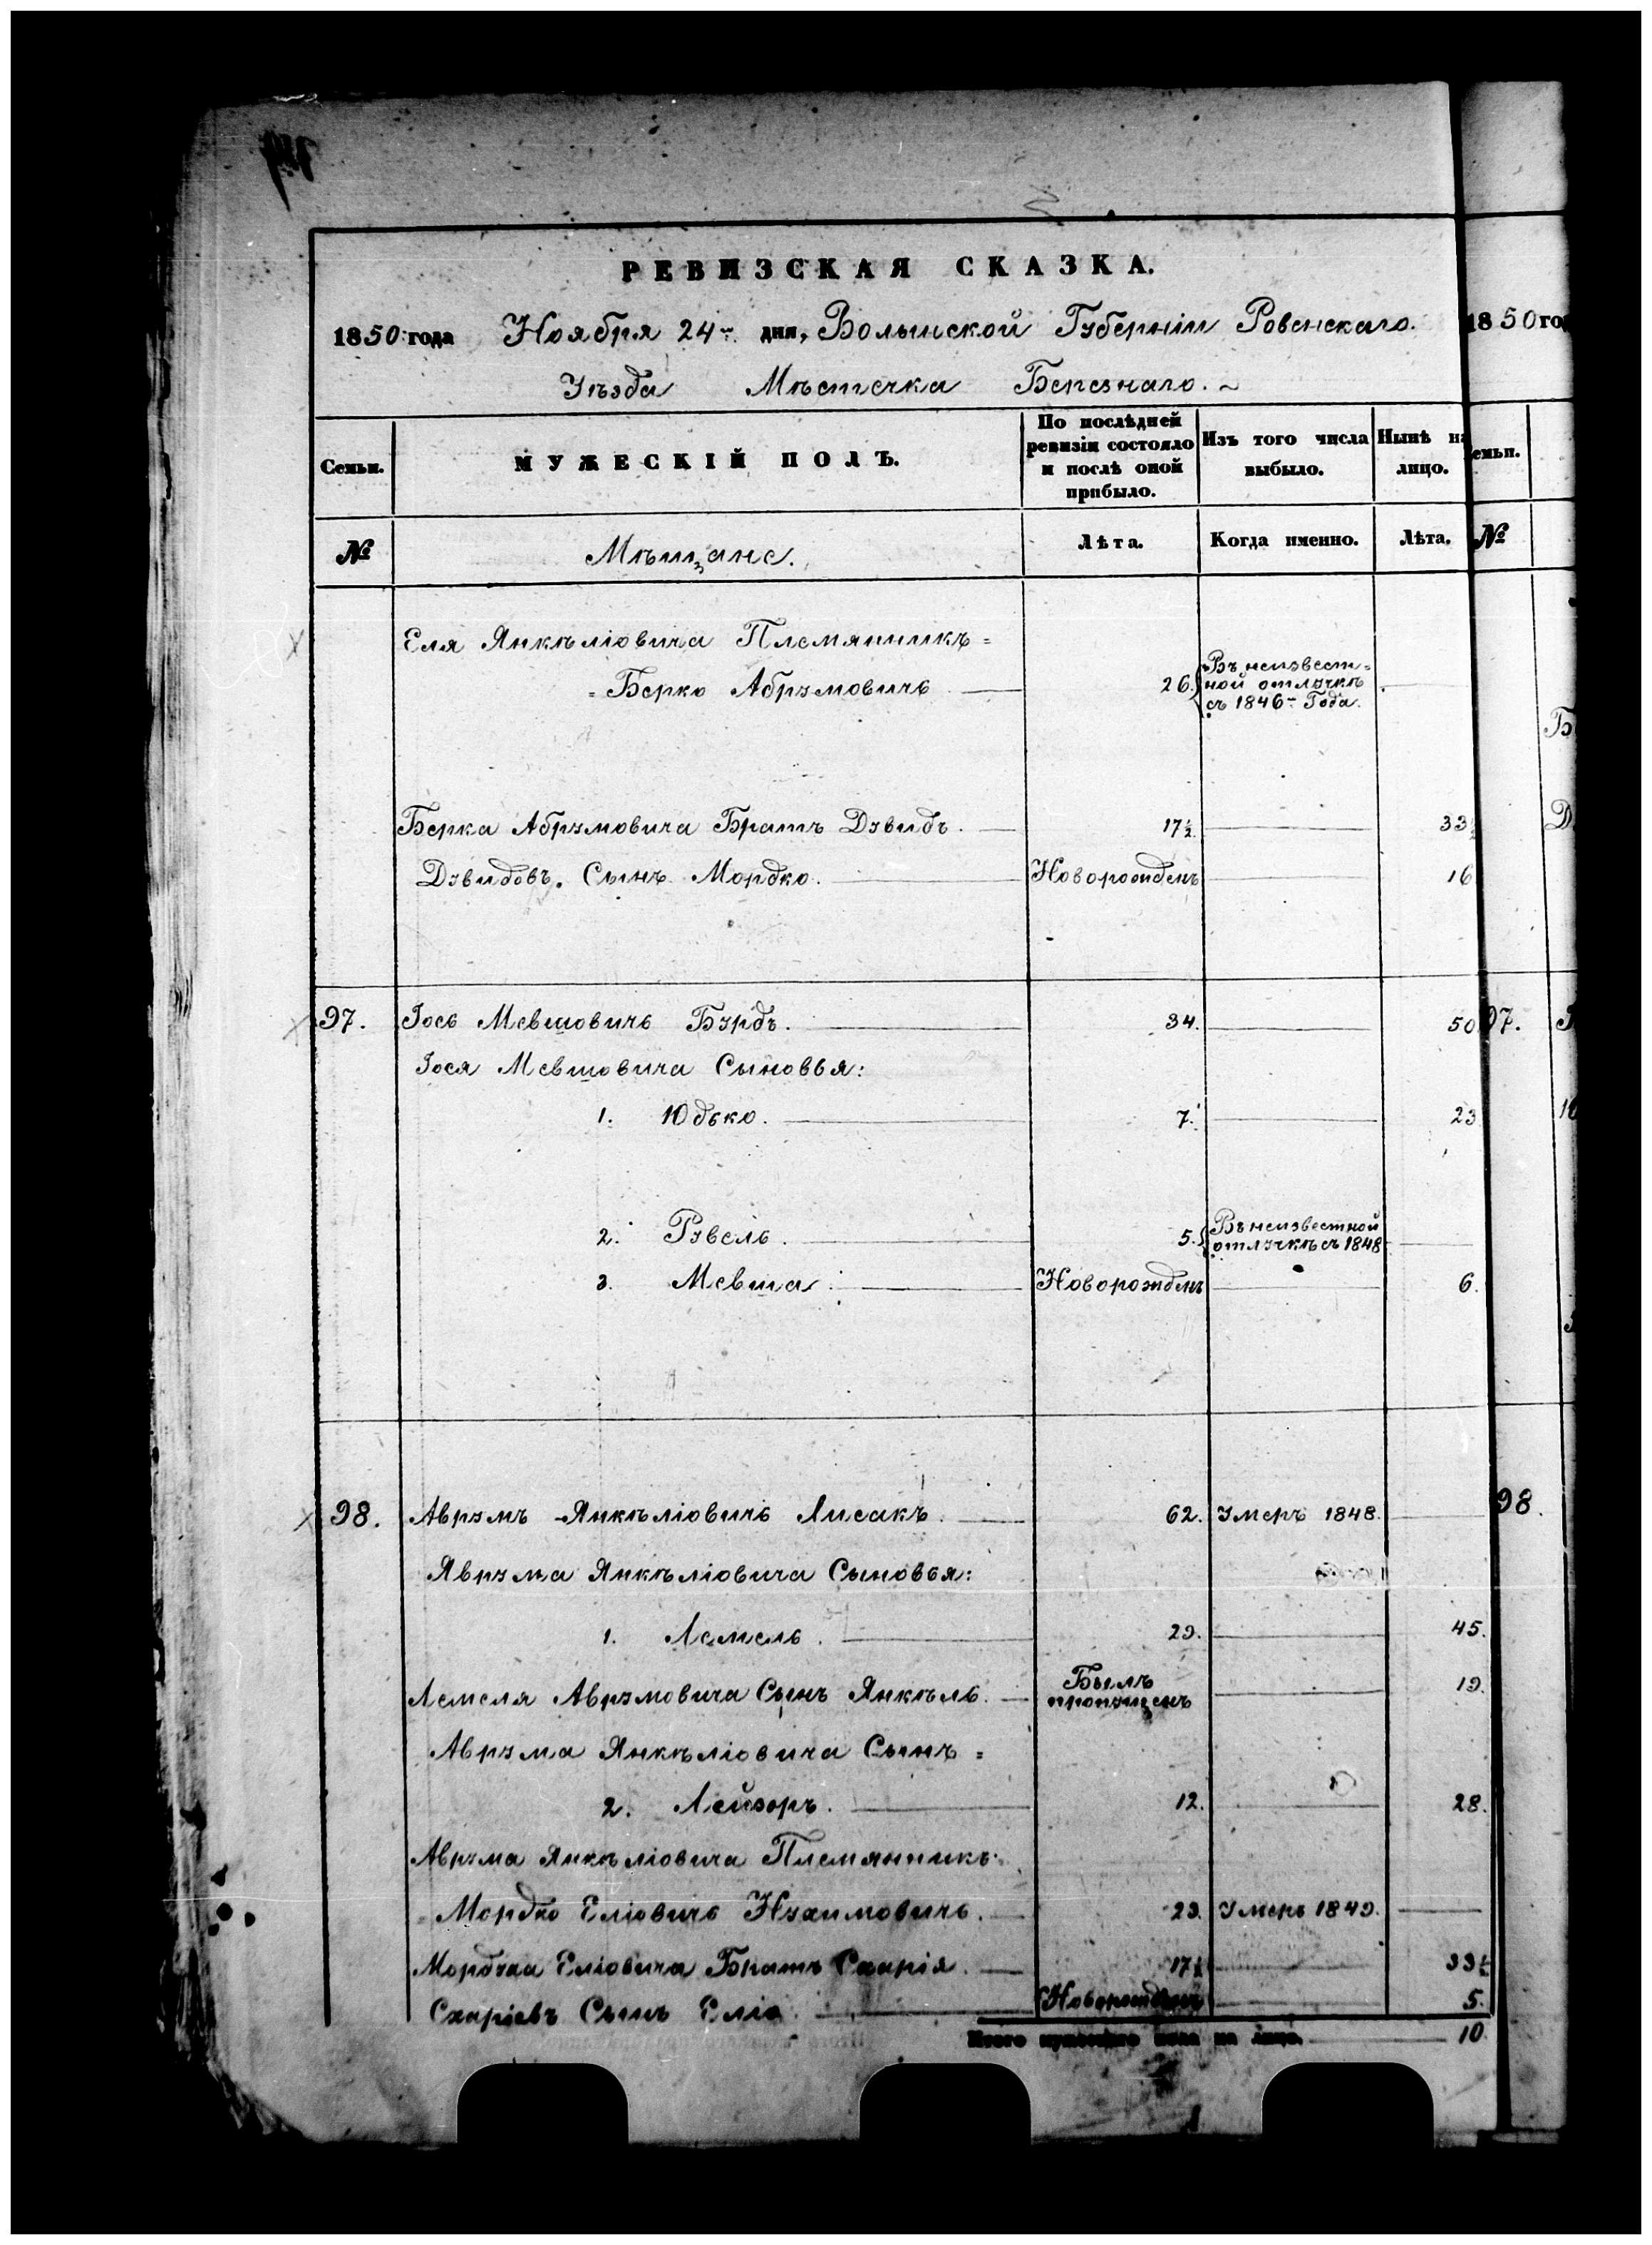 РЕВИЗСКАЯ СКАЗКА.
1850 года Ноября 24 дня, Волынской Губерніи Ровенскаго.
Уѣзда Мѣстечка Березнаго.
Семьи.
МУЖЕСКІЙ ПОЛЪ.
По послѣдней ревизіи состояло и послѣ оной прибыло.
Изъ того числа выбыло.
Нынѣ на лицо.
№
Мѣщане.
Лѣта.
Когда именно.
Лѣта.
Еля Янкѣліовича Племянникъ =
= Берко Абрумовичь 26. Въ неизвест=
ной отлучкѣ
съ 1846 Года.
Берка Абрумовича Братъ Дувидъ. 17½. 33½
Дувидовъ. Сынъ Мордко. Новорожденъ 16
97. Іось Мевшовичь Бурдъ. 34. 50
Іося Мевшовича Сыновья:
1. Юдько. 7. 23
2. Рувель. 5. Въ неизвестной
отлучкѣ съ 1848
3. Мевша. Новорожденъ 6.
98. Аврумъ Янкѣліовичь Лисакъ. 62. Умеръ 1848.
Аврума Янкѣліовича Сыновья:
1. Лемель. 29. 45.
Лемеля Аврумовича Сынъ Янкѣль. Былъ пропущенъ 19.
Аврума Янкѣліовича Сынъ =
2. Лейзоръ. 12. 28.
Аврума Янкѣліовича Племянникъ
Мордко Еліовичь Нухимовичь. 29. Умеръ 1849.
Мордка Еліовича Братъ Схарія. 17½ 33½
Схаріевъ Сынъ Еліо. Новорожденъ 5.
Итого мужескаго пола на лицо. 10
1850 год
Семьи.
№
97.
98.